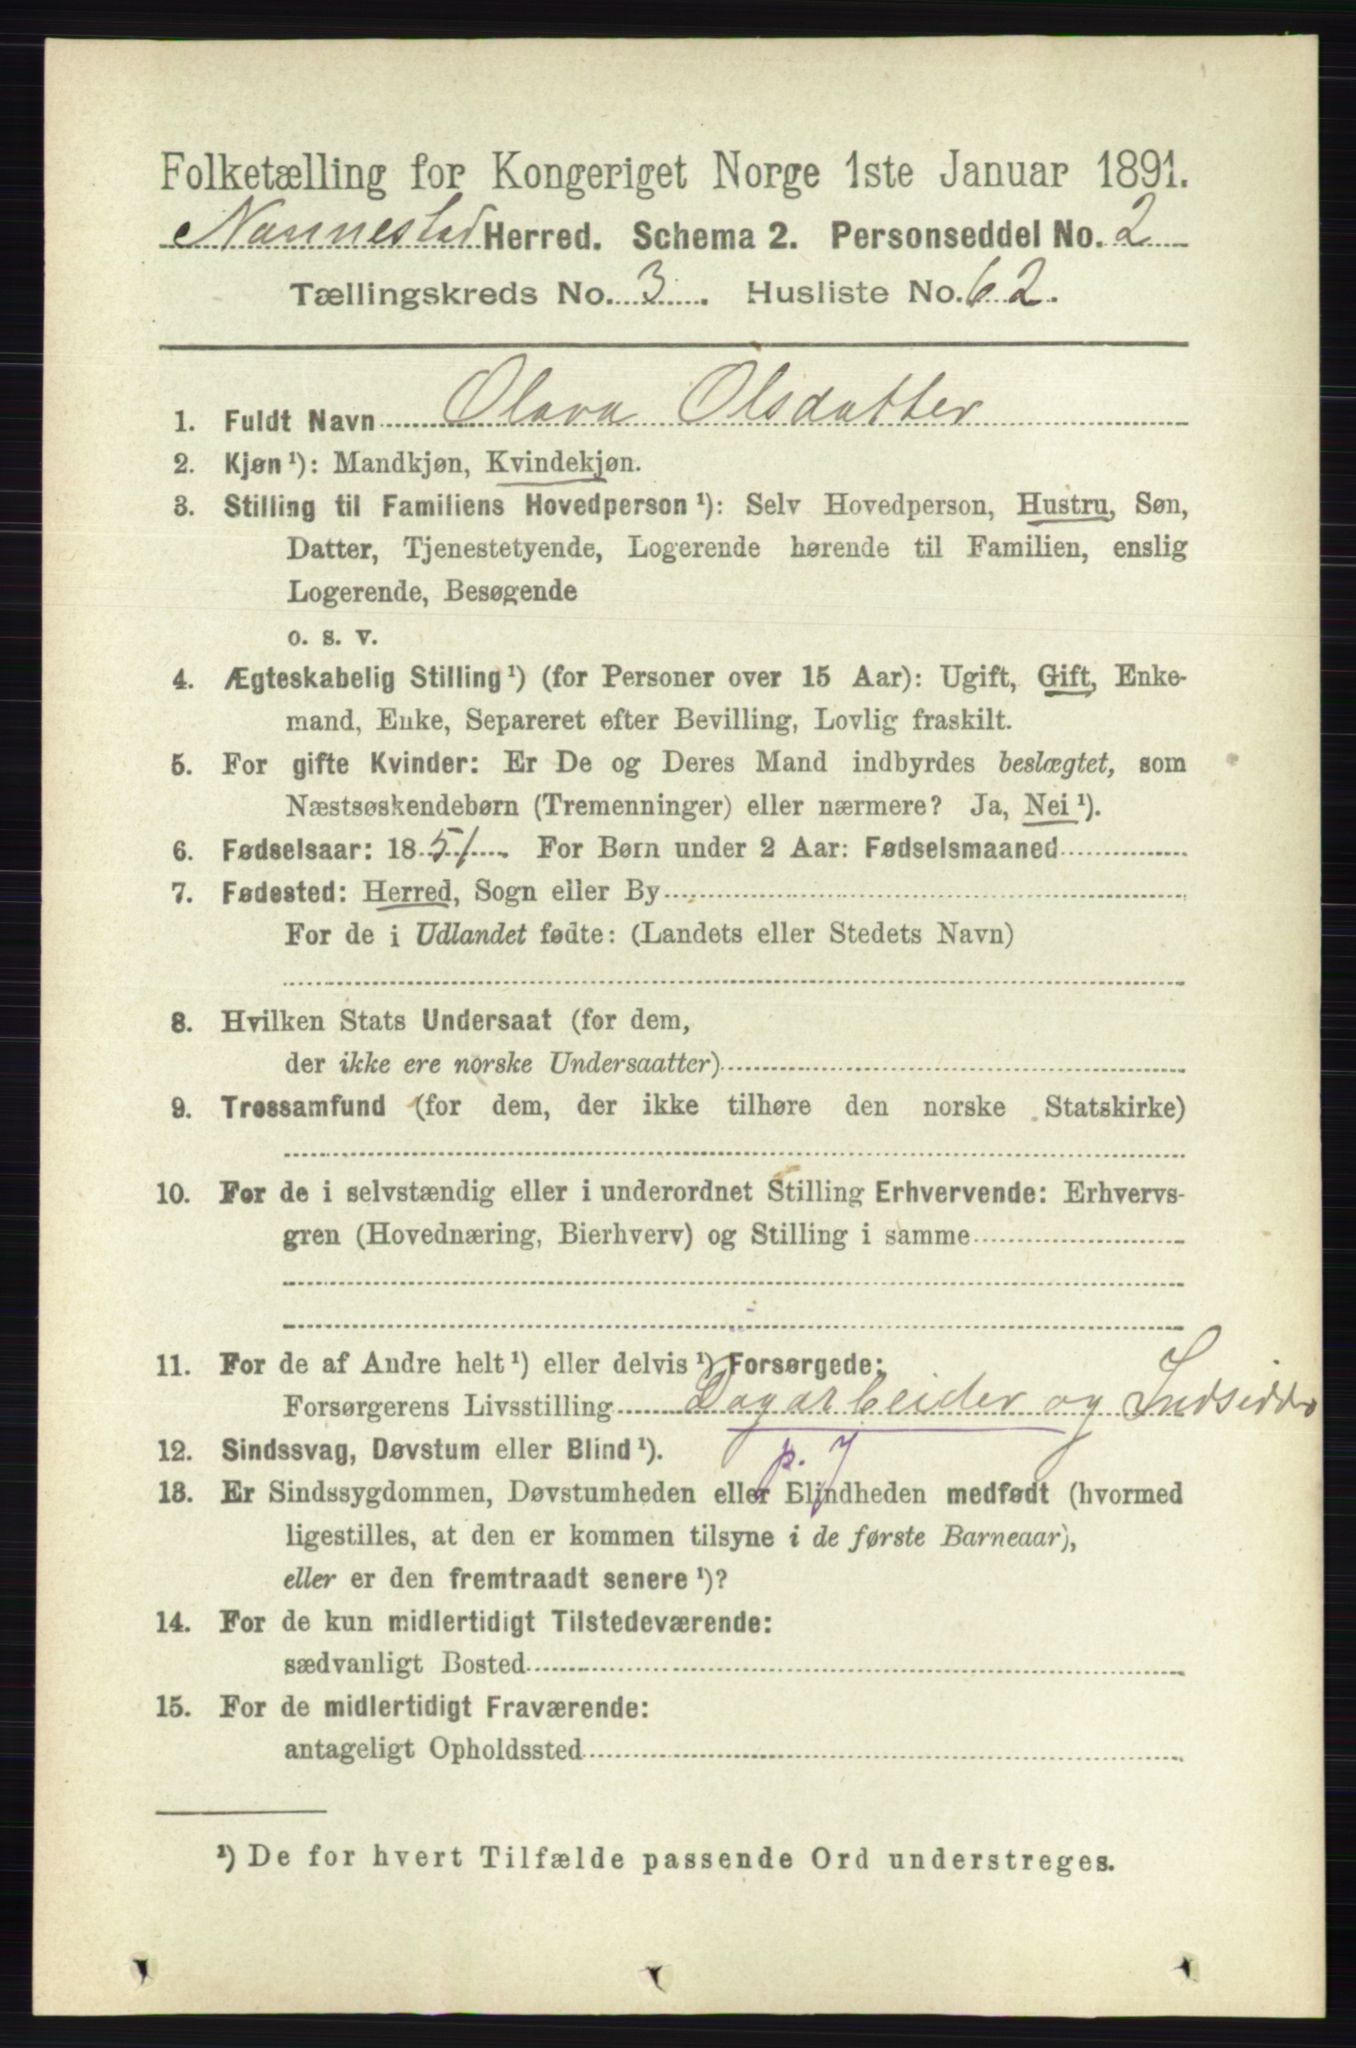 Folketælling for Kongeriget Norge 1ste Januar 1891.
Nannestad Herred. Schema 2. Personseddel No. 2
Tællingskreds No. 3. Husliste No. 62.
1. Fuldt Navn Olava Olsdatter
2. Kjøn ¹): Mandkjøn, Kvindekjøn.
3. Stilling til Familiens Hovedperson ¹): Selv Hovedperson, Hustru, Søn,
Datter, Tjenestetyende, Logerende hørende til Familien, enslig
Logerende, Besøgende
o. s. v.
4. Ægteskabelig Stilling ¹) (for Personer over 15 Aar): Ugift, Gift, Enke-
mand, Enke, Separeret efter Bevilling, Lovlig fraskilt.
5. For gifte Kvinder: Er De og Deres Mand indbyrdes beslægtet, som
Næstsøskendebørn (Tremenninger) eller nærmere? Ja, Nei ¹).
6. Fødselsaar: 1851. For Børn under 2 Aar: Fødselsmaaned
7. Fødested: Herred, Sogn eller By
For de i Udlandet fødte: (Landets eller Stedets Navn)
8. Hvilken Stats Undersaat (for dem,
der ikke ere norske Undersaatter)
9. Trossamfund (for dem, der ikke tilhøre den norske Statskirke)
10. For de i selvstændig eller i underordnet Stilling Erhvervende: Erhvervs-
gren (Hovednæring, Bierhverv) og Stilling i samme
11. For de af Andre helt ¹) eller delvis ¹) Forsørgede:
Forsørgerens Livsstilling Dagarbeider og Indsidder
12. Sindssvag, Døvstum eller Blind ¹). p. 7
13. Er Sindssygdommen, Døvstumheden eller Blindheden medfødt (hvormed
ligestilles, at den er kommen tilsyne i de første Barneaar),
eller er den fremtraadt senere ¹)?
14. For de kun midlertidigt Tilstedeværende:
sædvanligt Bosted
15. For de midlertidigt Fraværende:
antageligt Opholdssted
¹) De for hvert Tilfælde passende Ord understreges.